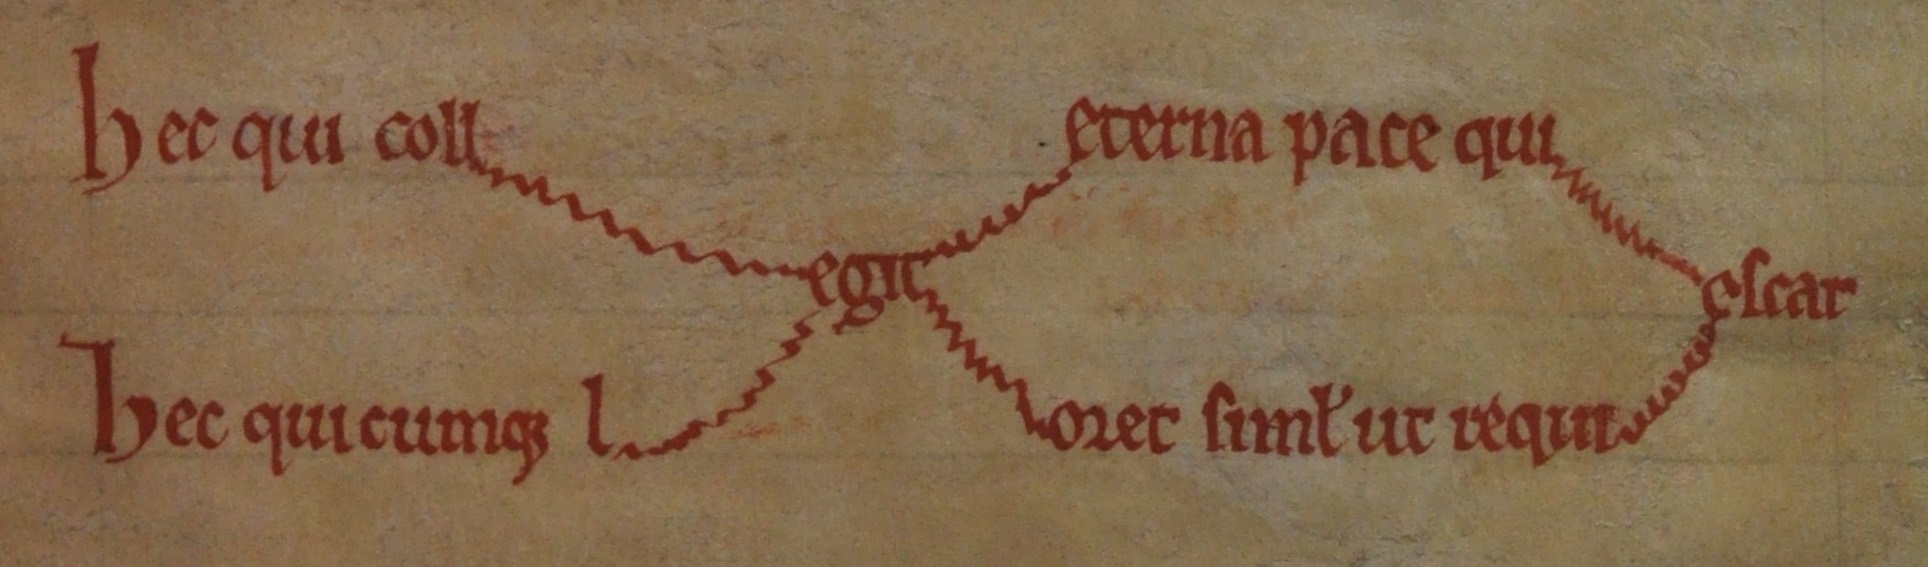 hec qui coll
eterna pace qui
egit
escat
hec quicumqꝫ l
oret simlʼ ut requi